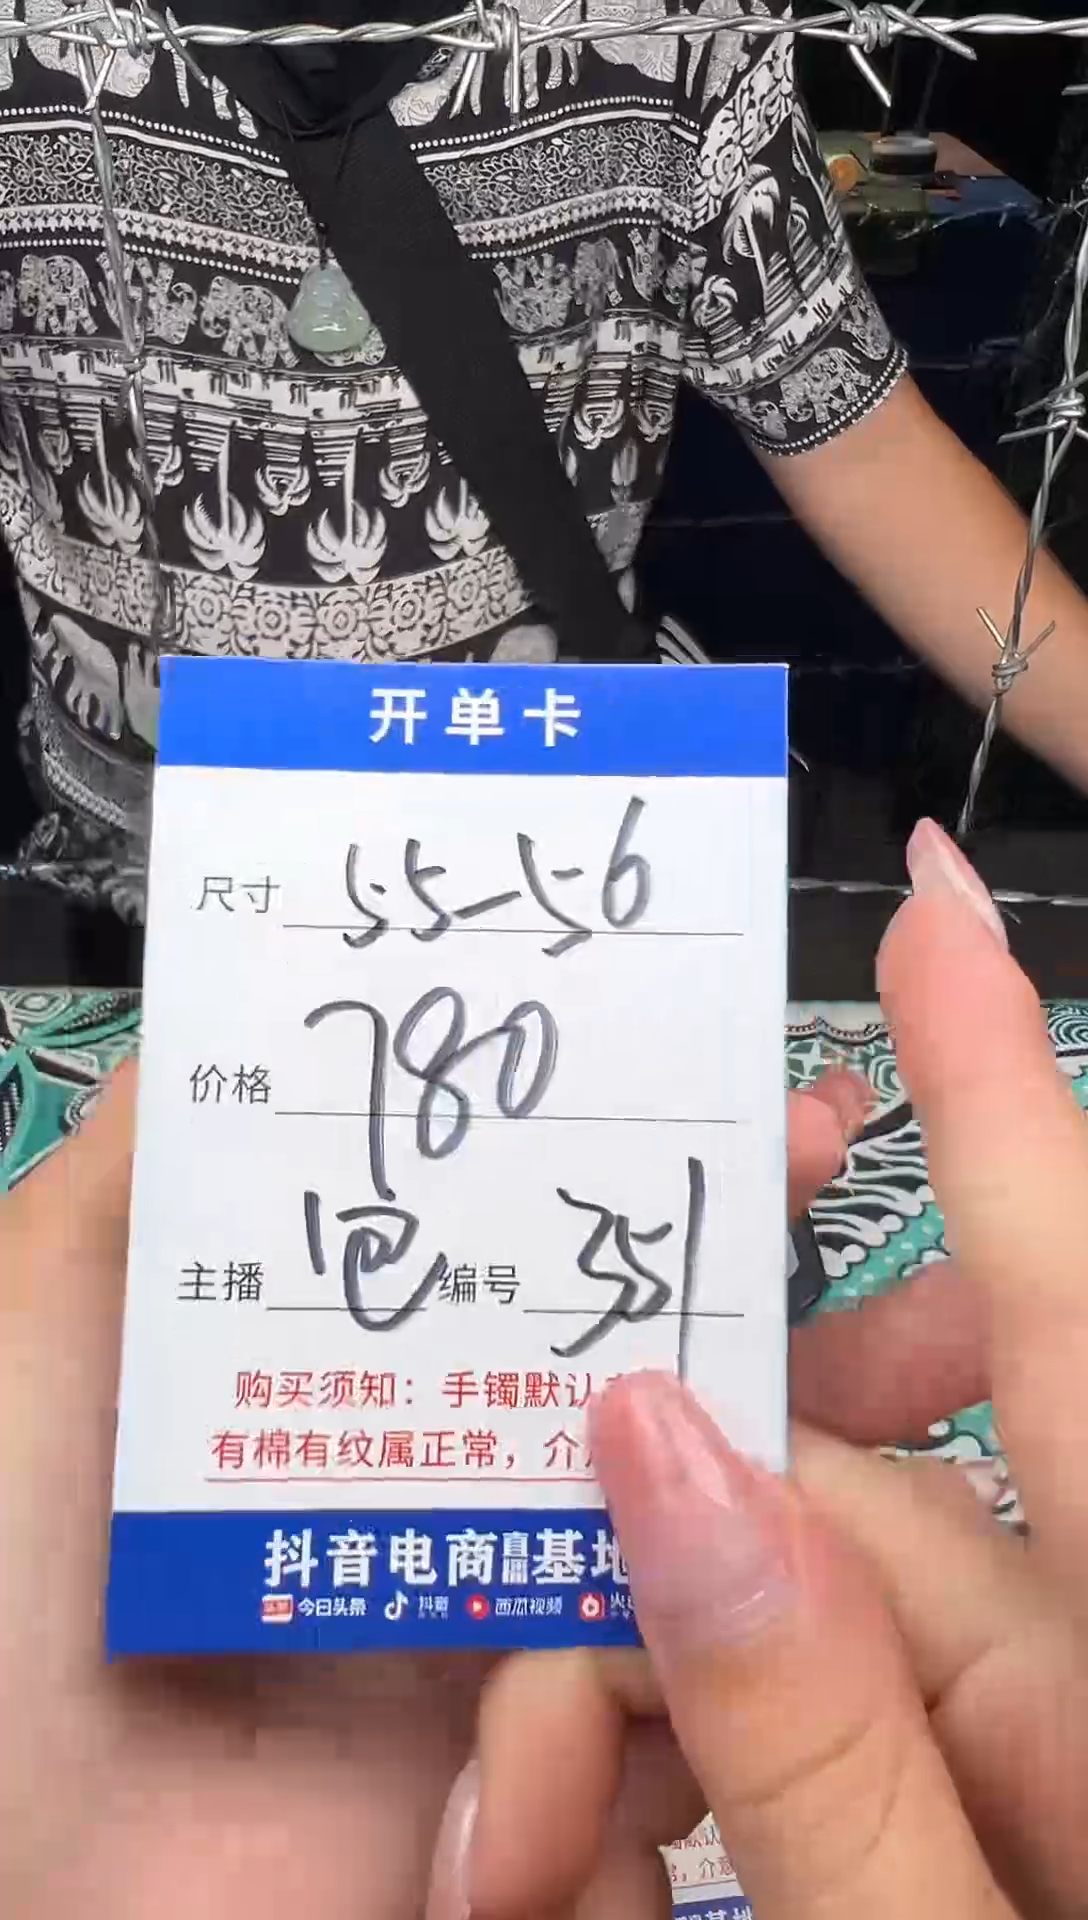 开单卡
尺寸 55-56
价格 780
主播 包 编号 351
购买须知：手镯默认
有棉有纹属正常，介
抖音电商直播基地
今日头条 抖音 西瓜视频 火
默认
介意
基地